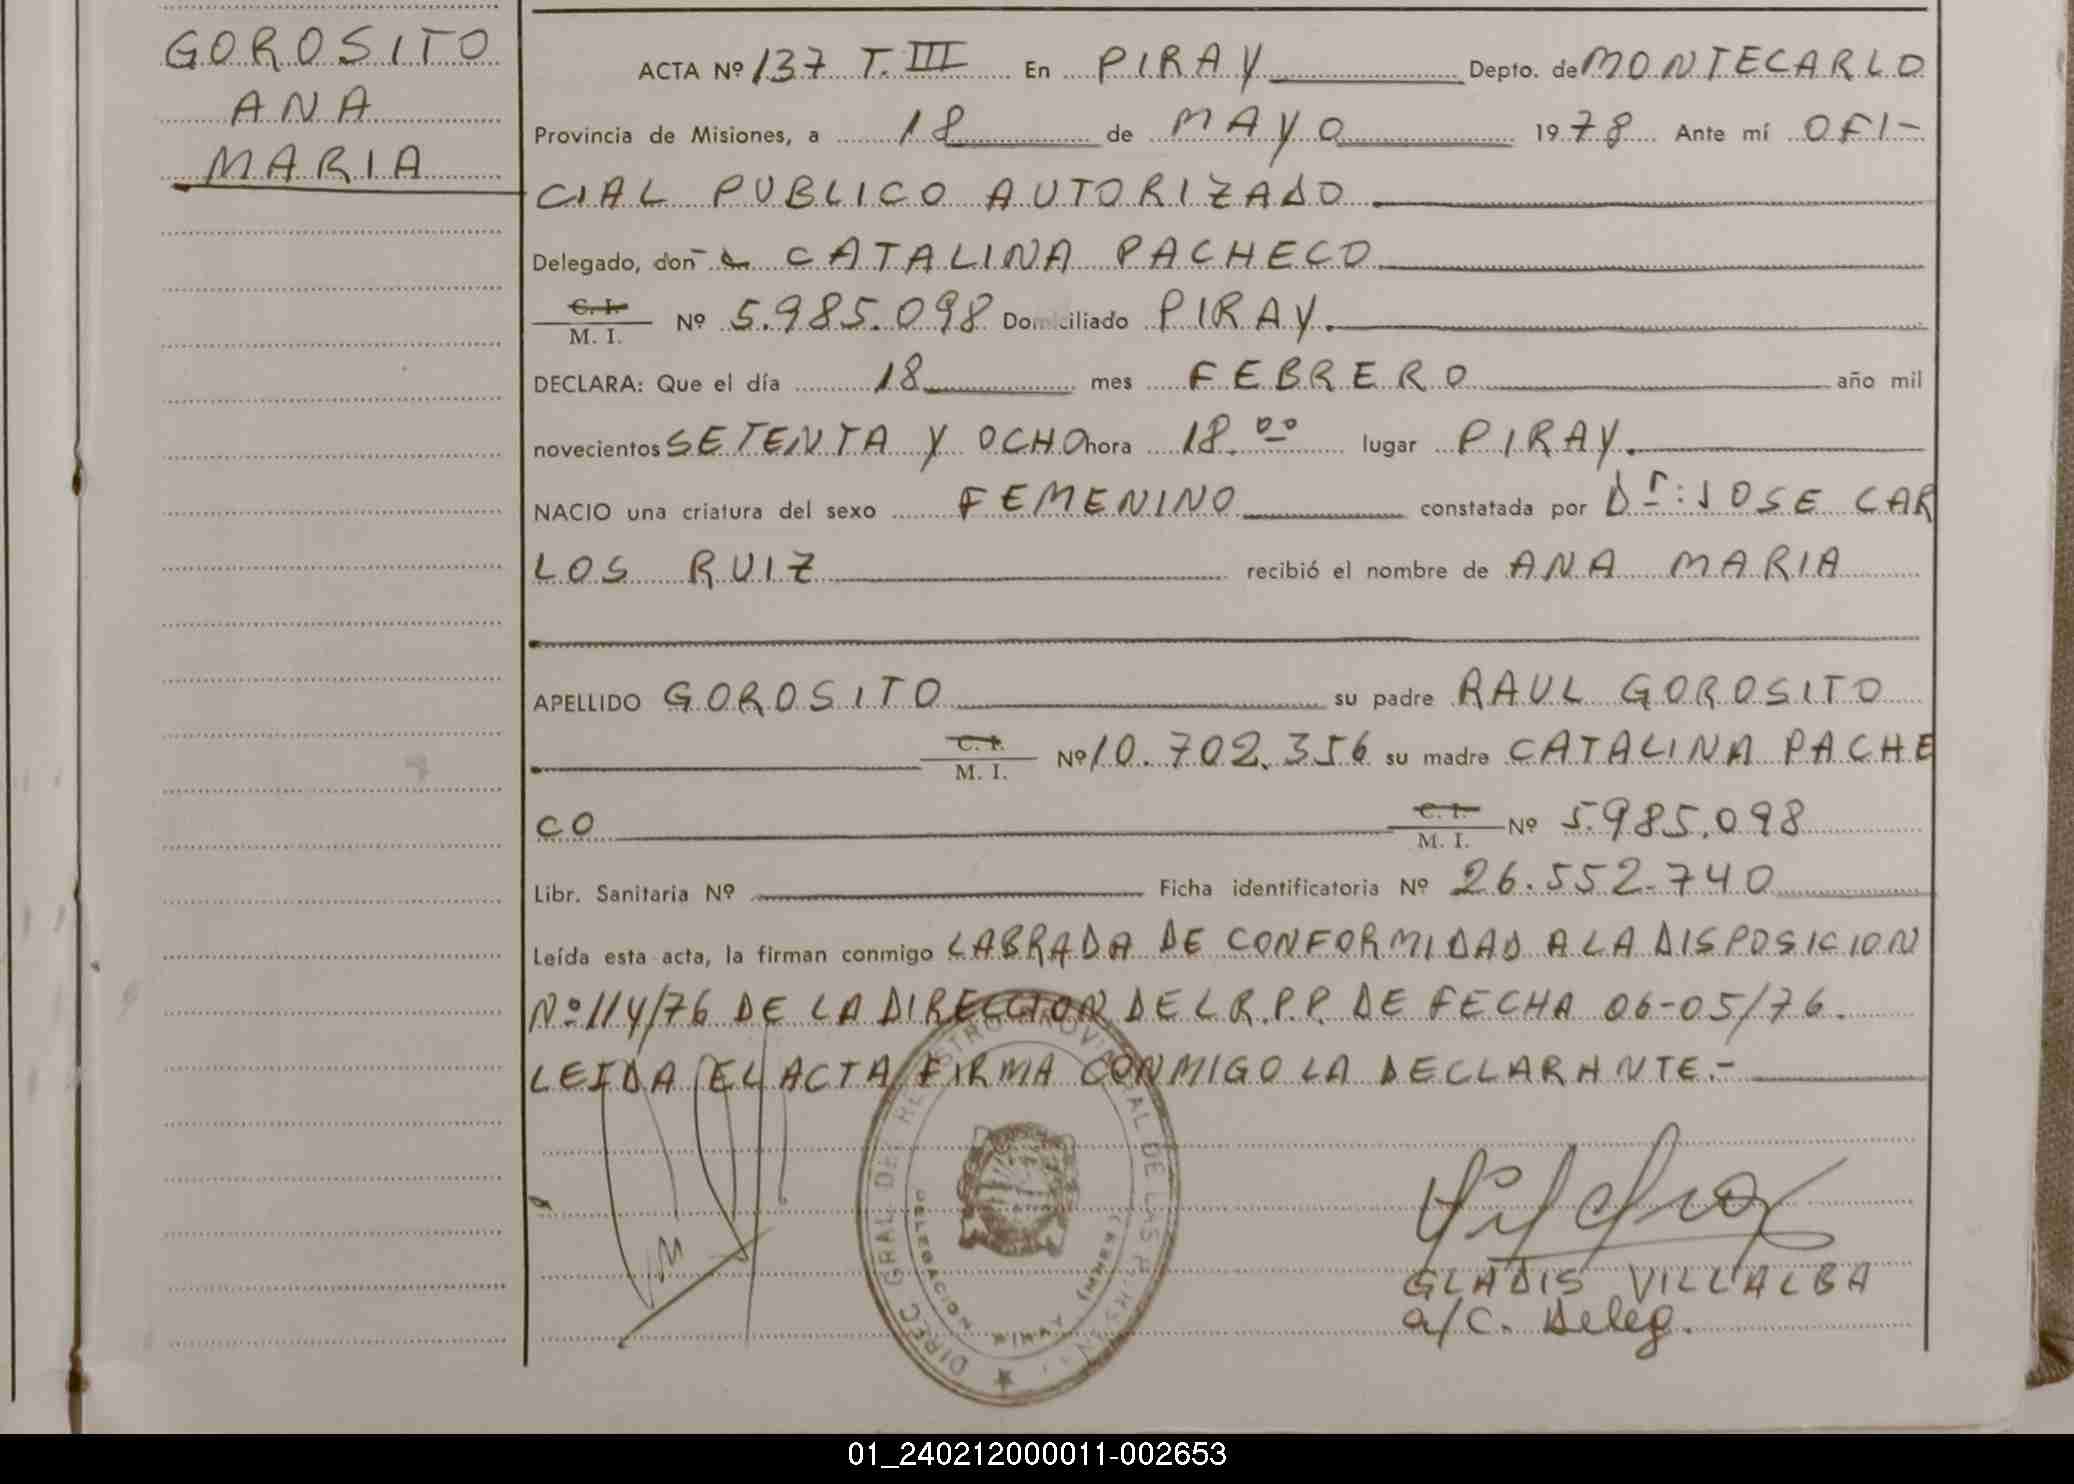 GOROSITO
ANA
MARIA
ACTA Nº 137 T. III En PIRAY Depto. de MONTECARLO
Provincia de Misiones, a 18 de MAYO 1978 Ante mí OFI-
CIAL PUBLICO AUTORIZADO.
Delegado, don a CATALINA PACHECO
C. I.
M. I. Nº 5.985.098 Domiciliado PIRAY.
DECLARA: Que el día 18 mes FEBRERO año mil
novecientos SETENTA Y OCHO hora 18.00 lugar PIRAY.
NACIO una criatura del sexo FEMENINO constatada por Dr: JOSE CAR
LOS RUIZ recibió el nombre de ANA MARIA
APELLIDO GOROSITO su padre RAUL GOROSITO
C. I.
M. I. Nº 10.702.356 su madre CATALINA PACHE
CO C. I.
M. I. Nº 5.985.098
Libr. Sanitaria Nº Ficha identificatoria Nº 26.552.740
Leída esta acta, la firman conmigo LABRADA DE CONFORMIDAD A LA DISPOSICION
Nº 114/76 DE LA DIRECCION DEL R.P.P. DE FECHA 06-05/76.
LEIDA EL ACTA FIRMA CONMIGO LA DECLARANTE.-
DIREC. GRAL. DEL REGISTRO PROVINCIAL DE LAS PERSONAS
DELEGACION PIRAY
GLADIS VILLALBA
a/c. Deleg.
01_240212000011-002653